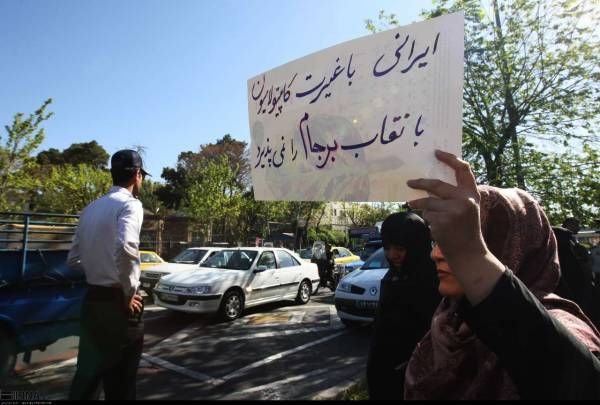 ایرانی با غیرت کاپیتولاسیون
با نقاب برجام را نمی پذیرد